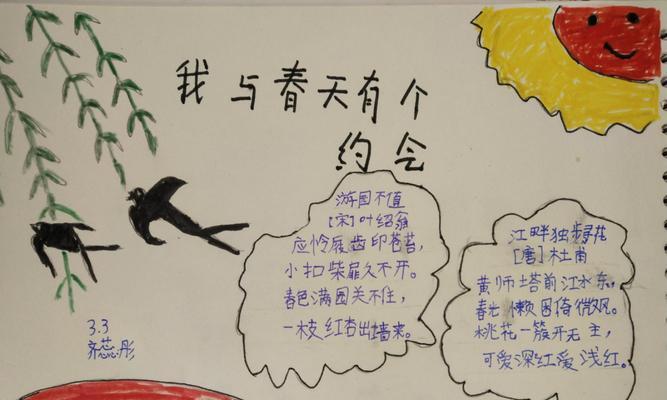 我与春天有个
约会
游园不值
[宋]叶绍翁
应怜屐齿印苍苔，
小扣柴扉久不开。
春色满园关不住，
一枝红杏出墙来。
江畔独步寻花
[唐]杜甫
黄师塔前江水东，
春光懒困倚微风。
桃花一簇开无主，
可爱深红爱浅红。
3.3
齐蕊彤